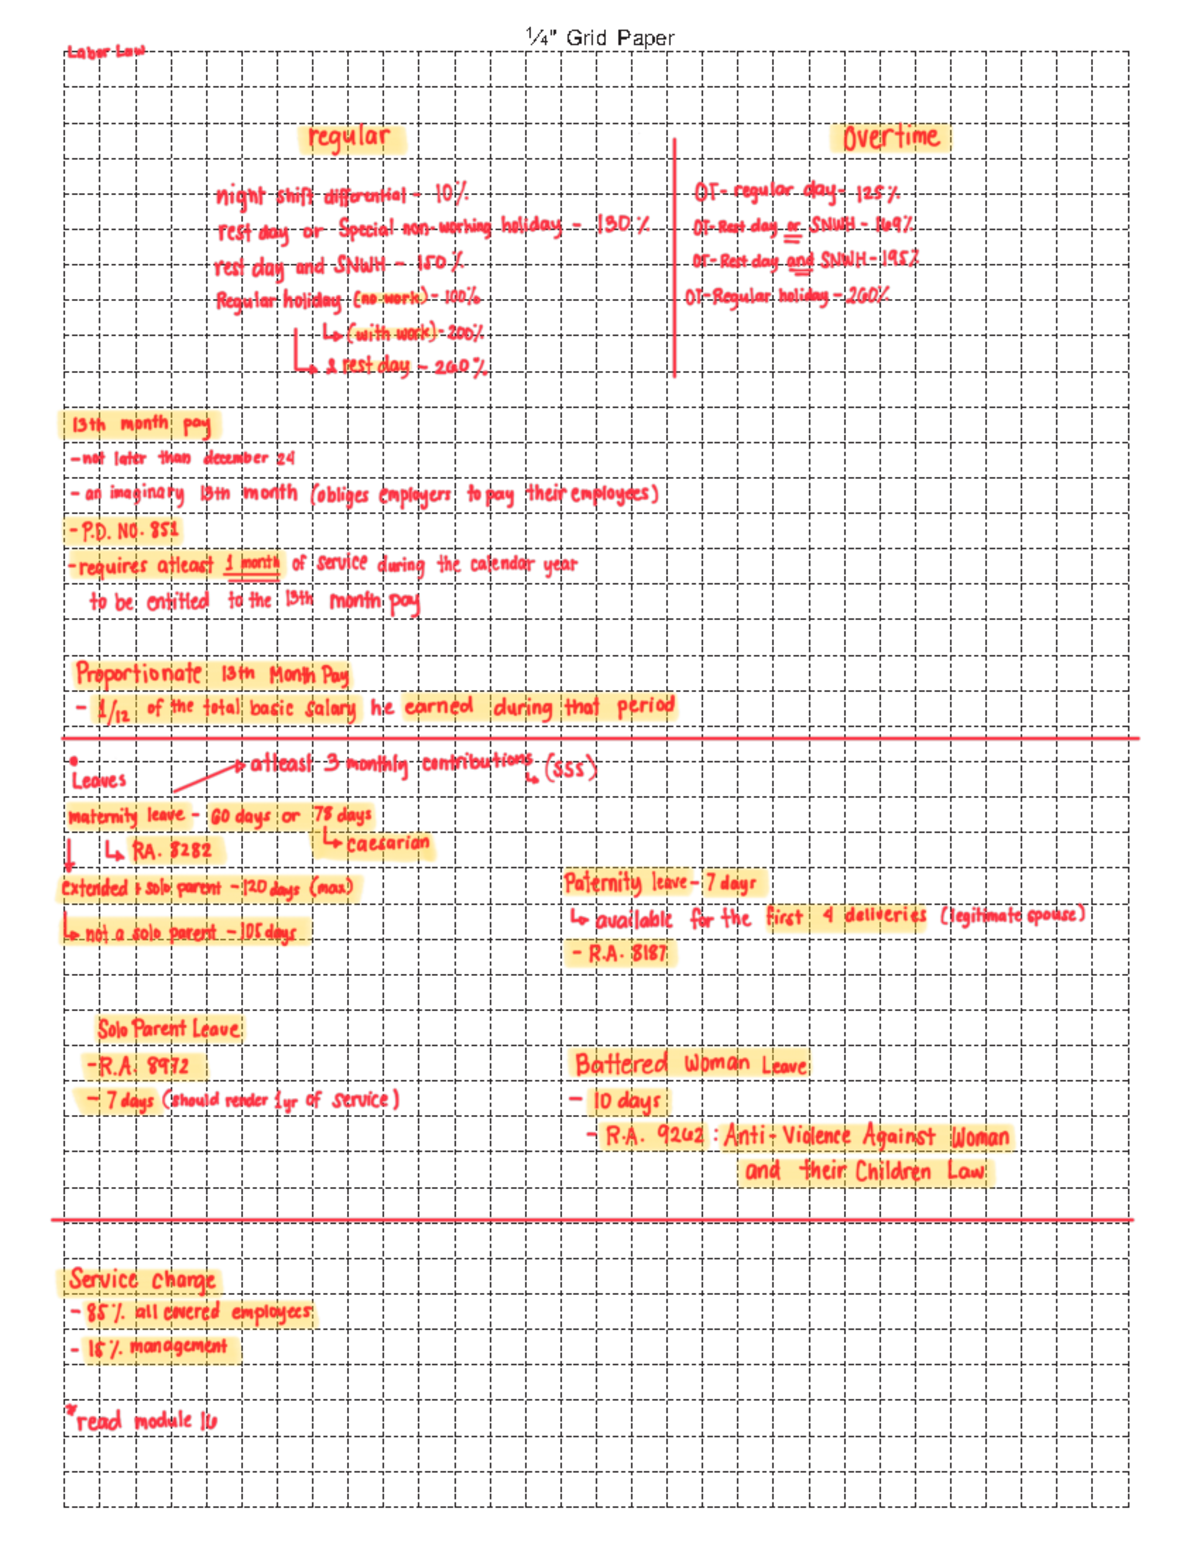 1/4" Grid Paper
Labor Law
regular
night shift differential - 10%
rest day or Special non-working holiday - 130%
rest day and SNWH - 150%
Regular holiday (no work) - 100%
↳ (with work) - 200%
↳ & rest day - 260%
Overtime
OT- regular day - 125%
OT-Rest day or SNWH - 169%
OT-Rest day and SNWH - 195%
OT-Regular holiday - 260%
13th month pay
- not later than december 24
- an imaginary 13th month (obliges employers to pay their employees)
- P.D. NO. 851
- requires atleast 1 month of service during the calendar year
to be entitled to the 13th month pay
Proportionate 13th Month Pay
- 1/12 of the total basic salary he earned during that period
• Leaves
→ atleast 3 monthly contributions
↳ (SSS)
maternity leave - 60 days or 78 days
↳ RA. 8282
↳ caesarian
Extended & solo parent - 120 days (max)
↳ not a solo parent - 105 days
Paternity leave - 7 days
↳ available for the first 4 deliveries (legitimate spouse)
- R.A. 8187
Solo Parent Leave
- R.A. 8972
- 7 days (should render 1yr of service)
Battered Woman Leave
- 10 days
- R.A. 9262 : Anti-Violence Against Woman
and their Children Law
Service charge
- 85% all covered employees
- 15% management
*read module